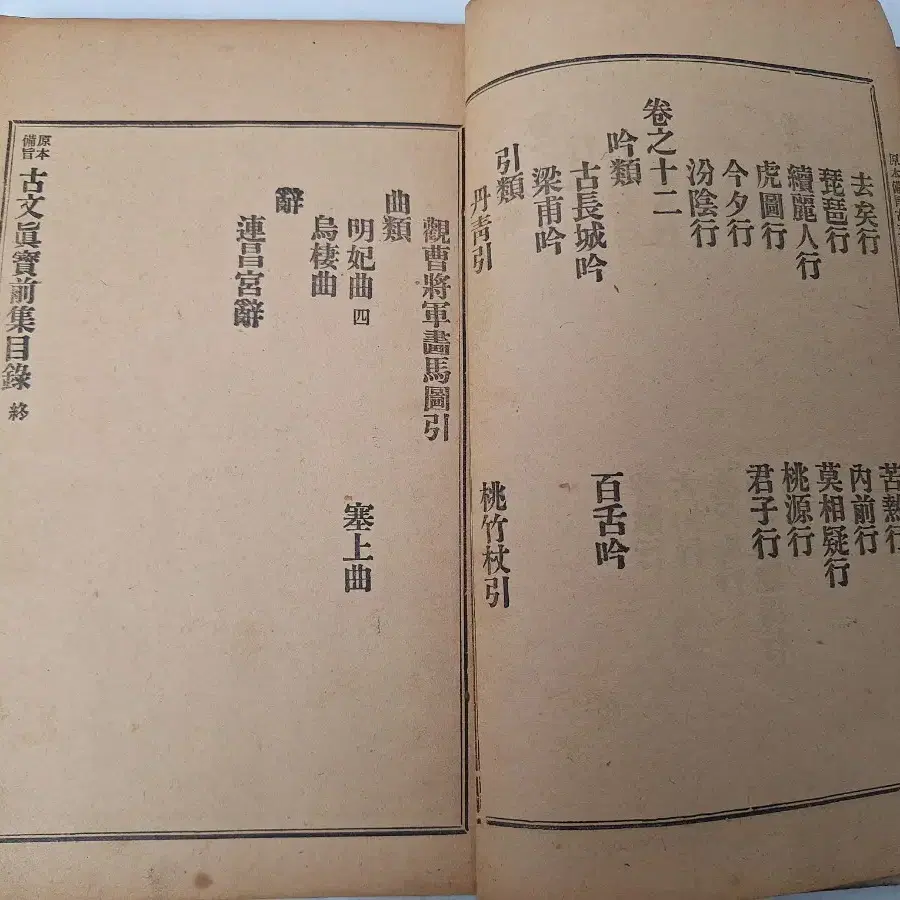 去矣行
苦熱行
琵琶行
內前行
續麗人行
莫相疑行
虎圖行
桃源行
今夕行
君子行
汾陰行
卷之十二
吟類
古長城吟
百舌吟
梁甫吟
引類
丹靑引
桃竹杖引
觀曹將軍畫馬圖引
曲類
明妃曲 四
塞上曲
烏棲曲
辭
連昌宮辭
原本備旨 古文眞寶前集目錄 終